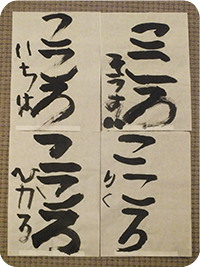 こころ
そうす
こころ
いちは
こころ
りく
こころ
ひかる